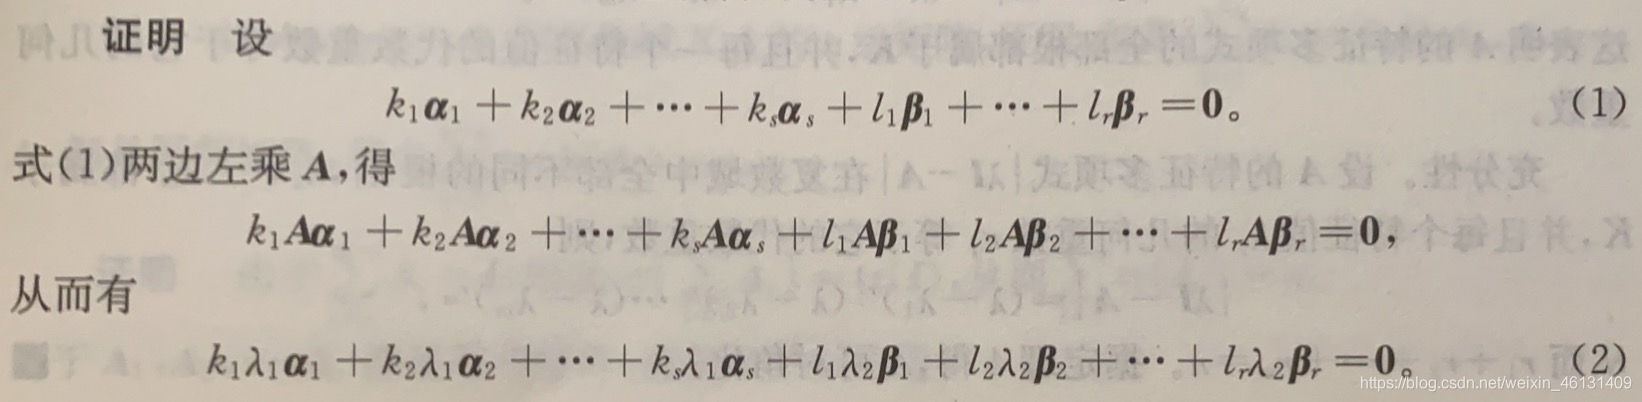 证明 设
k₁α₁ + k₂α₂ + ⋯ + kₛαₛ + l₁β₁ + ⋯ + lᵣβᵣ = 0。 (1)
式(1)两边左乘 A,得
k₁Aα₁ + k₂Aα₂ + ⋯ + kₛAαₛ + l₁Aβ₁ + l₂Aβ₂ + ⋯ + lᵣAβᵣ = 0,
从而有
k₁λ₁α₁ + k₂λ₁α₂ + ⋯ + kₛλ₁αₛ + l₁λ₂β₁ + l₂λ₂β₂ + ⋯ + lᵣλ₂βᵣ = 0。 (2)
https://blog.csdn.net/weixin_46131409